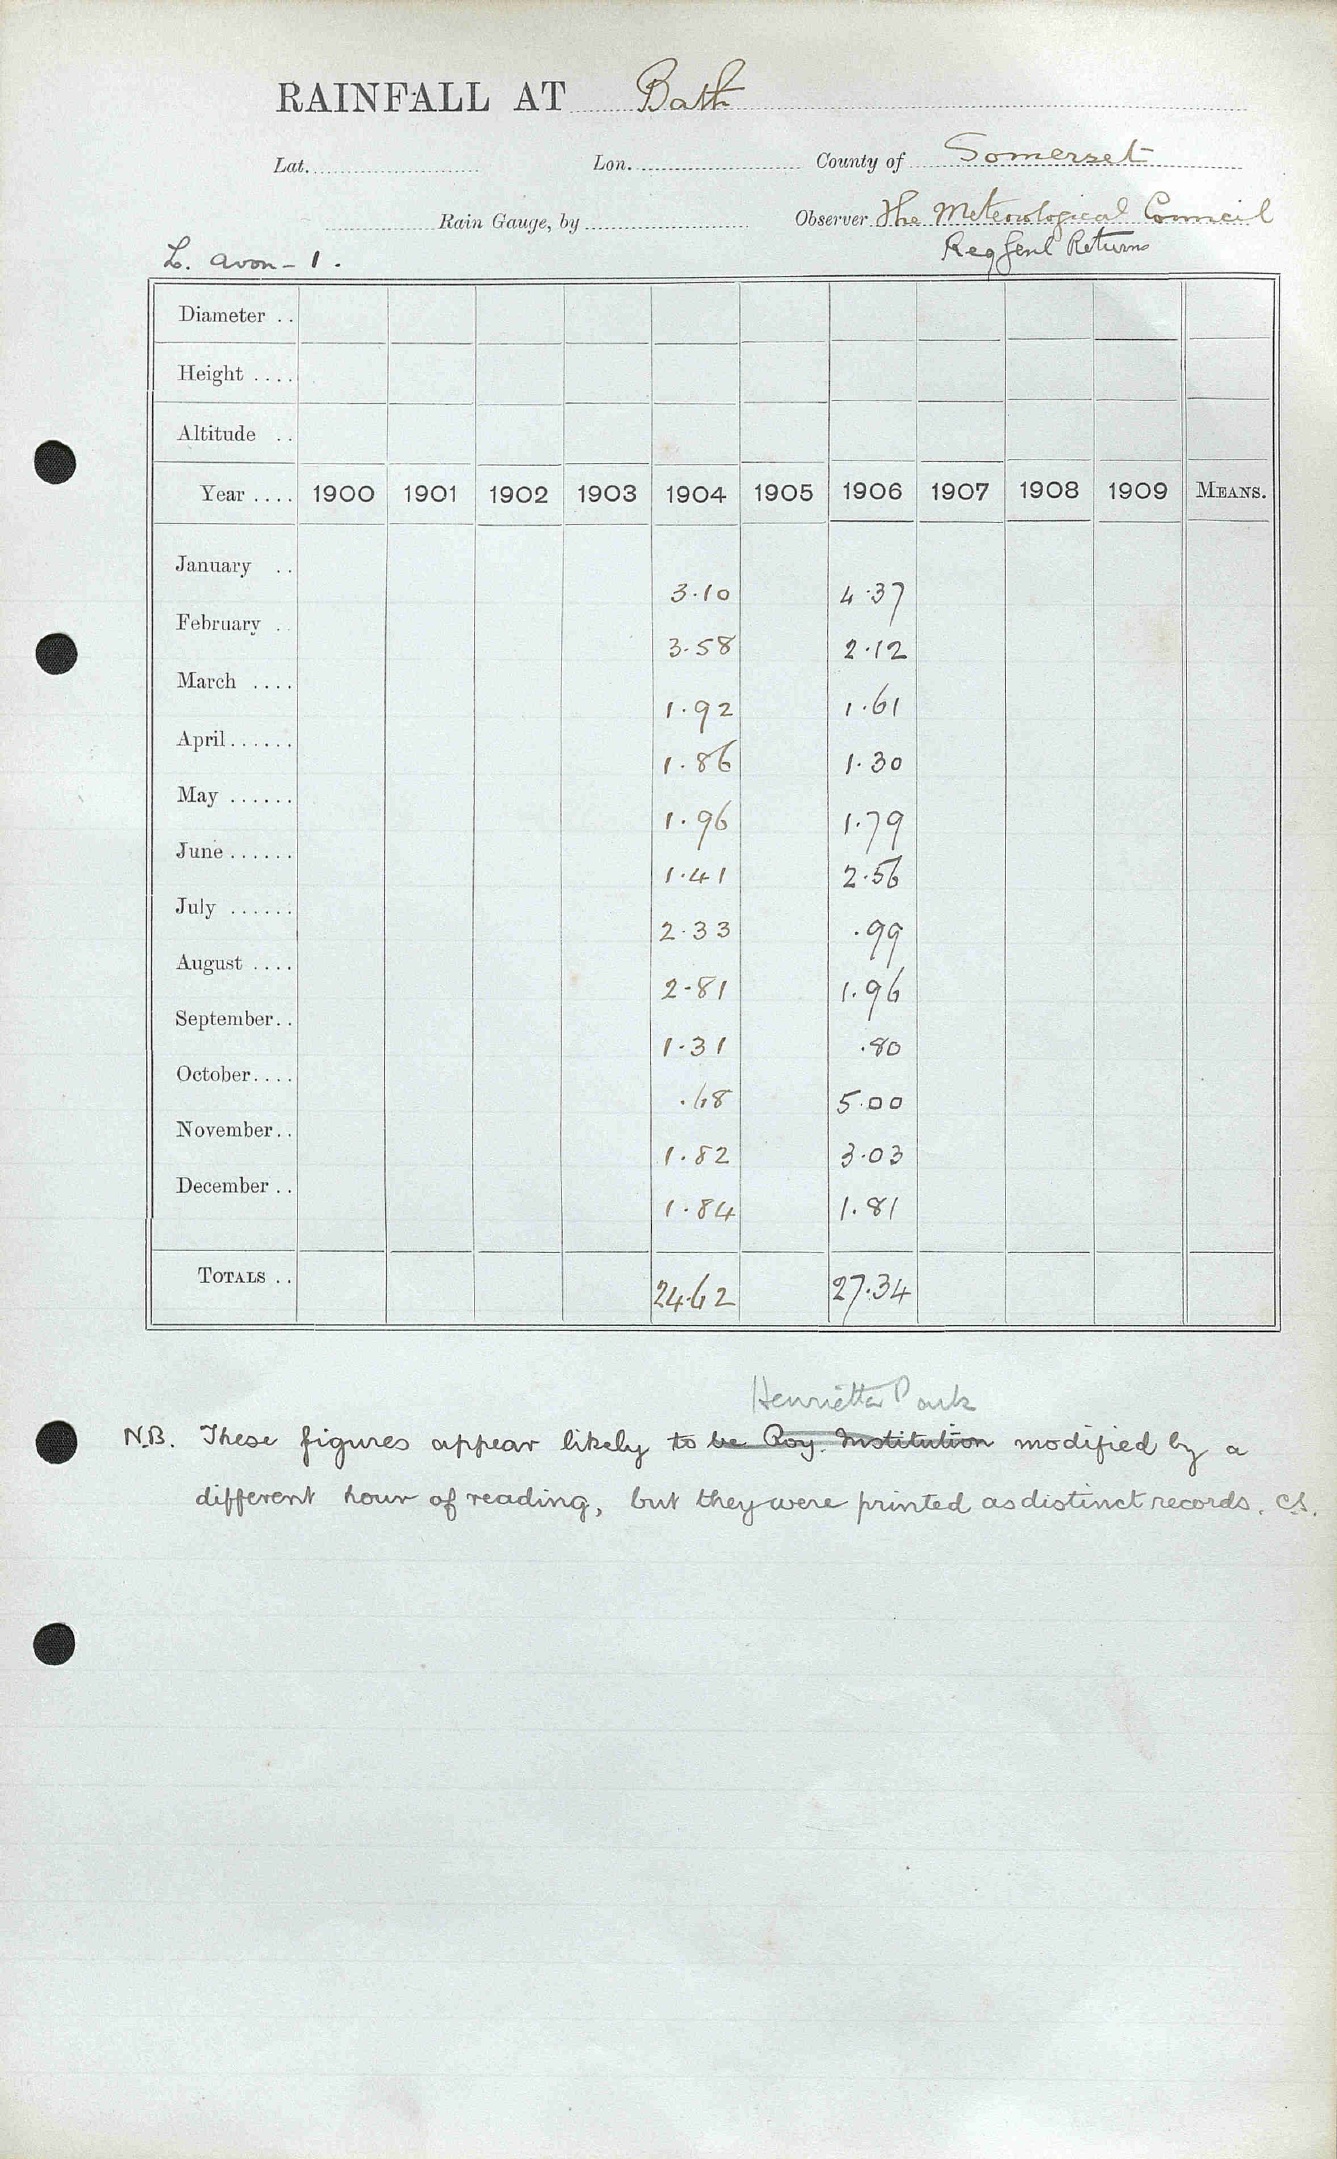 RAINFALL AT Bath
Lat. Lon. County of Somerset
Rain Gauge, by Observer The Meteorological Council
L. Avon - 1. Reg Genl Returns
Diameter ..
Height ....
Altitude ..
Year .... 1900 1901 1902 1903 1904 1905 1906 1907 1908 1909 MEANS.
January .. 3.10 4.37
February .. 3.58 2.12
March .... 1.92 1.61
April...... 1.86 1.30
May ...... 1.96 1.79
June...... 1.41 2.56
July ...... 2.33 .99
August .... 2.81 1.96
September.. 1.31 .80
October.... .68 5.00
November.. 1.82 3.03
December .. 1.84 1.81
TOTALS .. 24.62 27.34
Henrietta Park
N.B. These figures appear likely to be Roy. Institution modified by a
different hour of reading, but they were printed as distinct records. C.S.